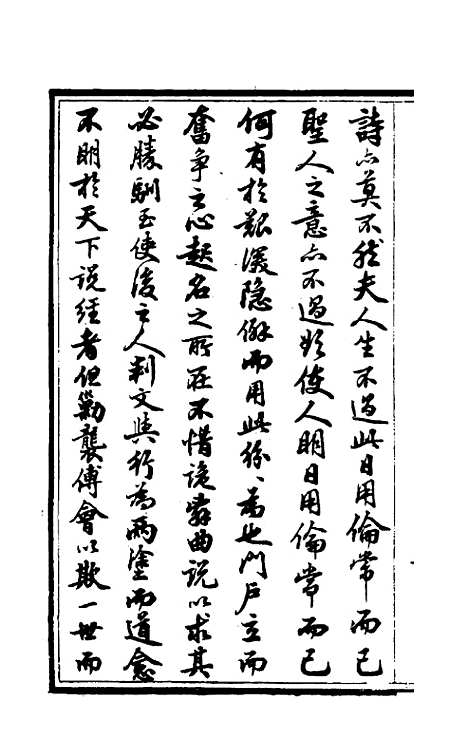 詩亦莫不然夫人生不過此日用倫常而已
聖人之意亦不過欲使人明日用倫常而已
何有於艱深隱僻而用此紛紛為也門戶立而
奮爭之心起名之所在不惜詭辭曲說以求其
必勝馴至使後之人判文與行為兩塗而道愈
不明於天下說經者但勦襲傅會以欺一世而